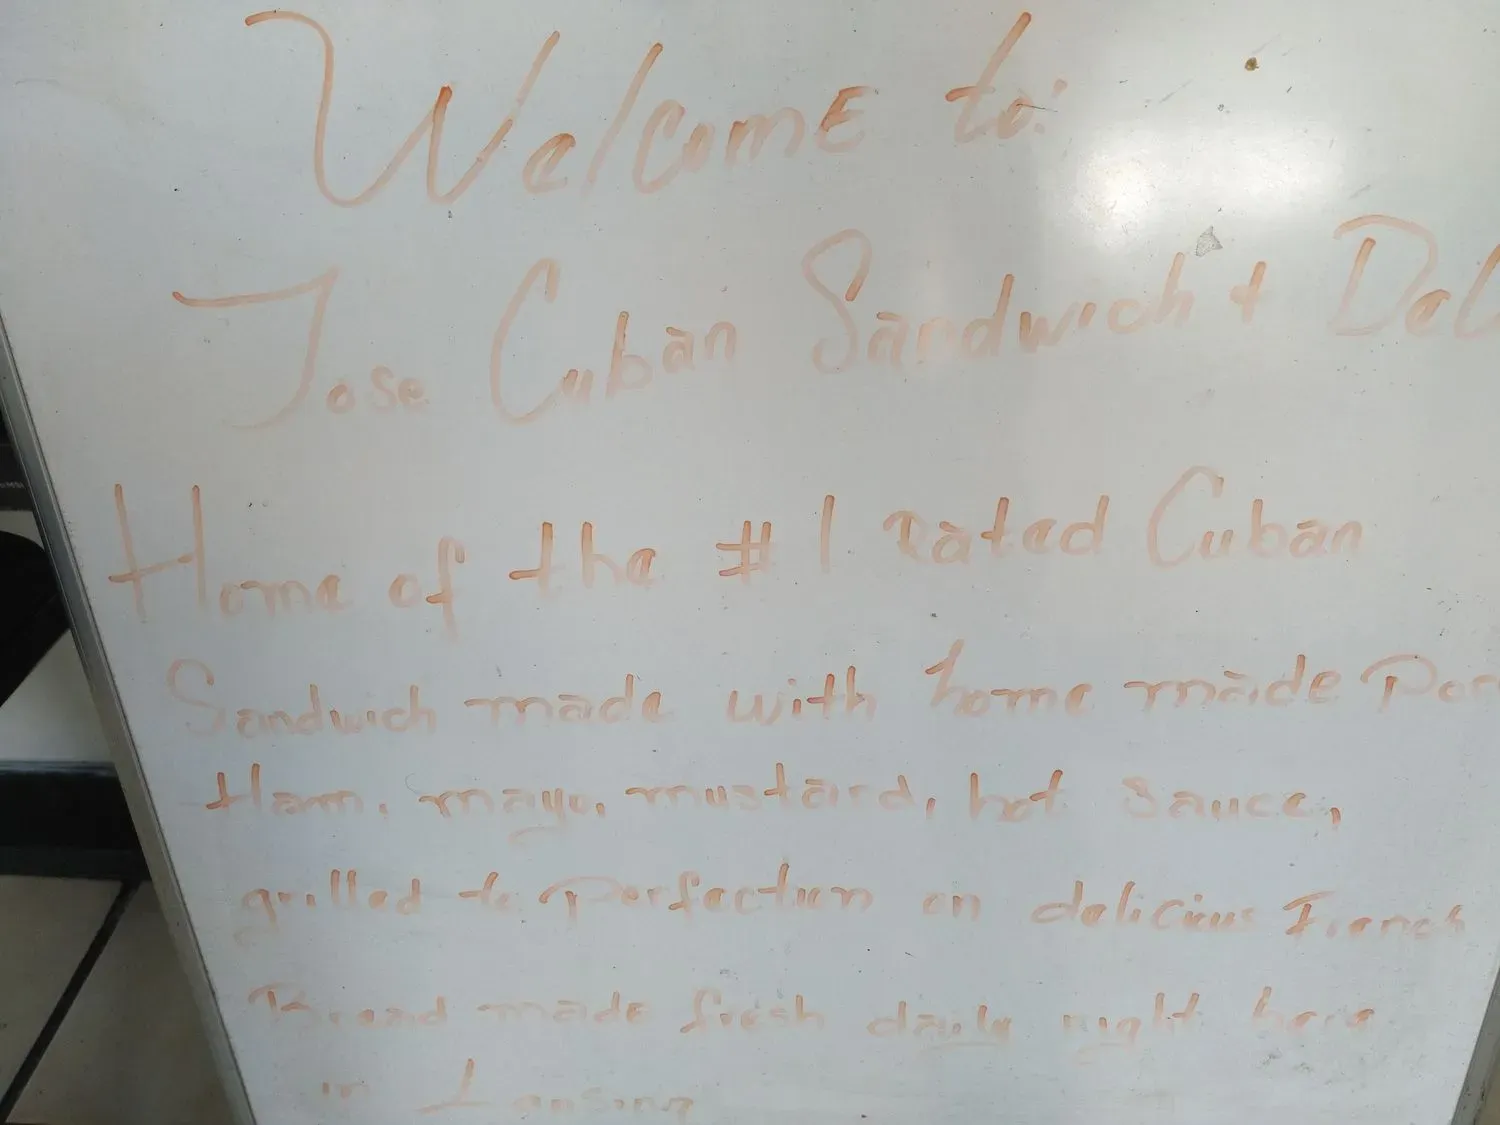 Welcome to:
Jose Cuban Sandwich + Del
Home of the #1 Rated Cuban
Sandwich made with home made Por
Ham, mayo, mustard, hot sauce,
grilled to Perfection on delicious French
Bread made fresh daily right here
in Lansing